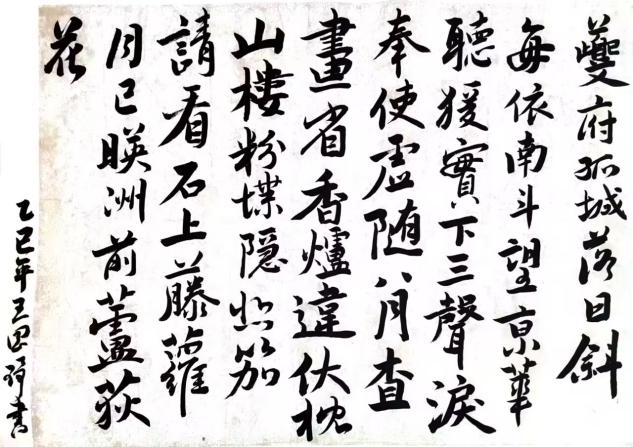 夔府孤城落日斜
每依南斗望京華
聽猨實下三聲淚
奉使虛随八月查
畫省香爐違伏枕
山樓粉堞隠悲笳
請看石上藤蘿
月已暎洲前蘆荻
花
乙巳年王思詩書